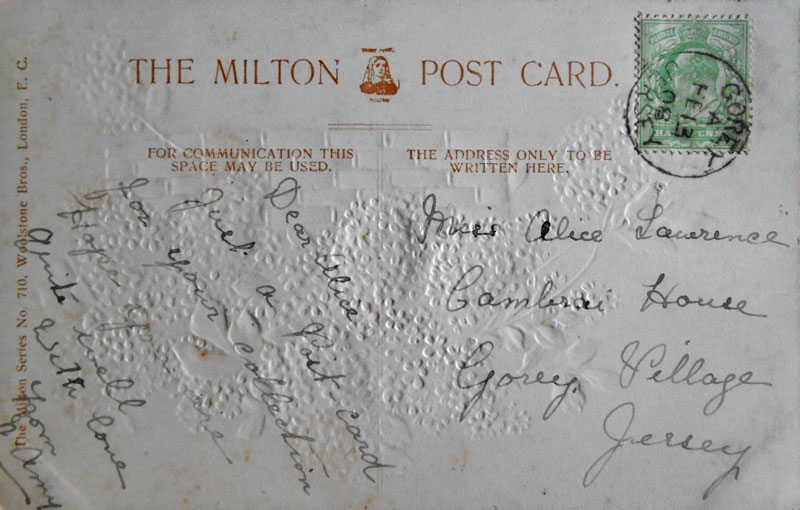 THE MILTON POST CARD.
FOR COMMUNICATION THIS
SPACE MAY BE USED.
THE ADDRESS ONLY TO BE
WRITTEN HERE.
The Milton Series No. 710. Woolstone Bros., London, E. C.
Dear Alice
Just a Post-card
for your collection
Hope you are
quite well
With love
from Amy
Miss Alice Lawrence
Cambrai House
Gorey Village
Jersey
GOREY
FE 13
08
JERSEY
HALFPENNY